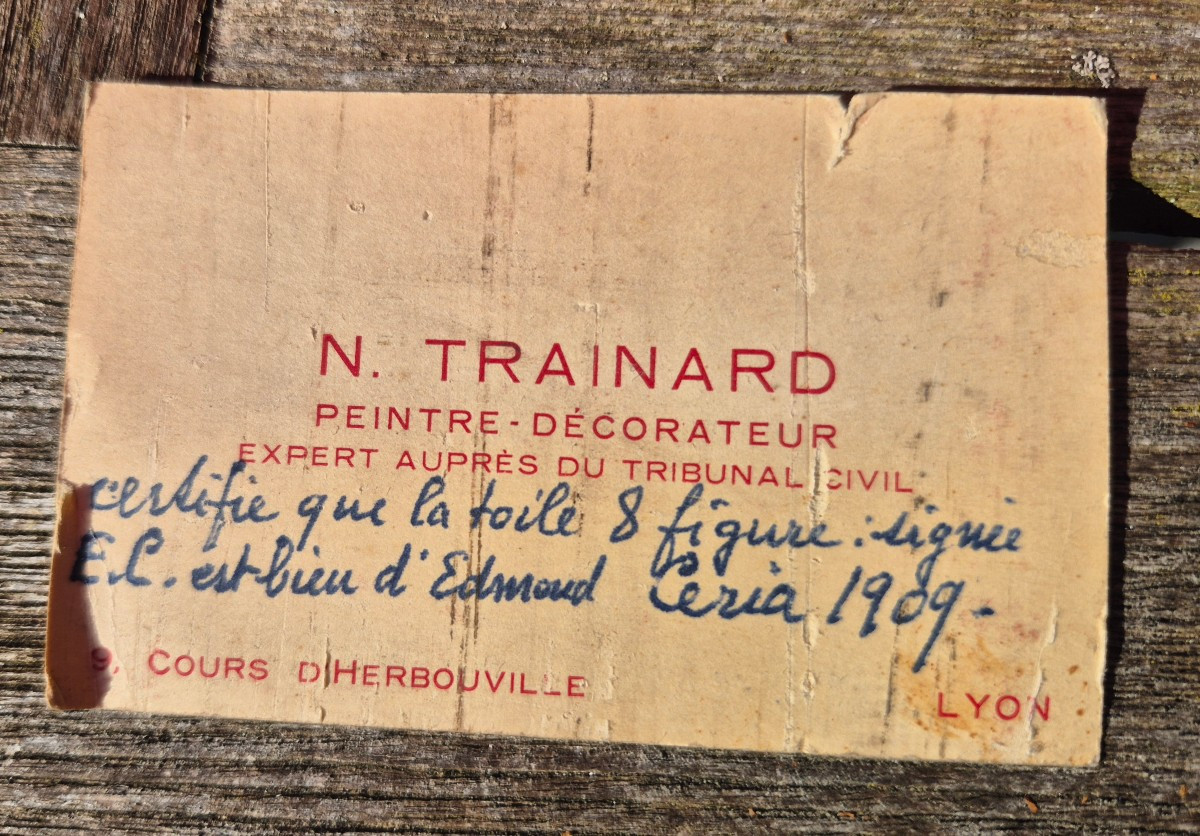 N. TRAINARD
PEINTRE-DÉCORATEUR
EXPERT AUPRÈS DU TRIBUNAL CIVIL
certifie que la toile 8 figure : signée
E.C. est bien d'Edmond Céria 1909-
9, COURS D'HERBOUVILLE
LYON